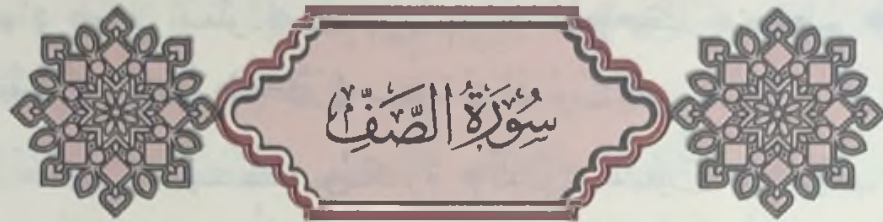 سُورَةُ الصَّفِّ